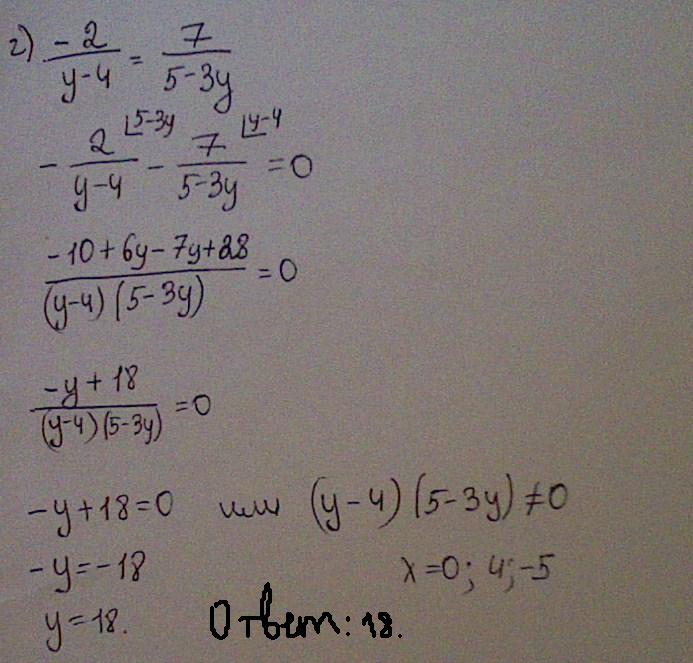 г) -2/(y-4) = 7/(5-3y)
- 2/(y-4) ⌊5-3y - 7/(5-3y) ⌊y-4 = 0
(-10+6y-7y+28)/((y-4)(5-3y)) = 0
(-y+18)/((y-4)(5-3y)) = 0
-y+18=0 или (y-4)(5-3y)≠0
-y=-18 x=0; 4; -5
y=18. Ответ: 18.